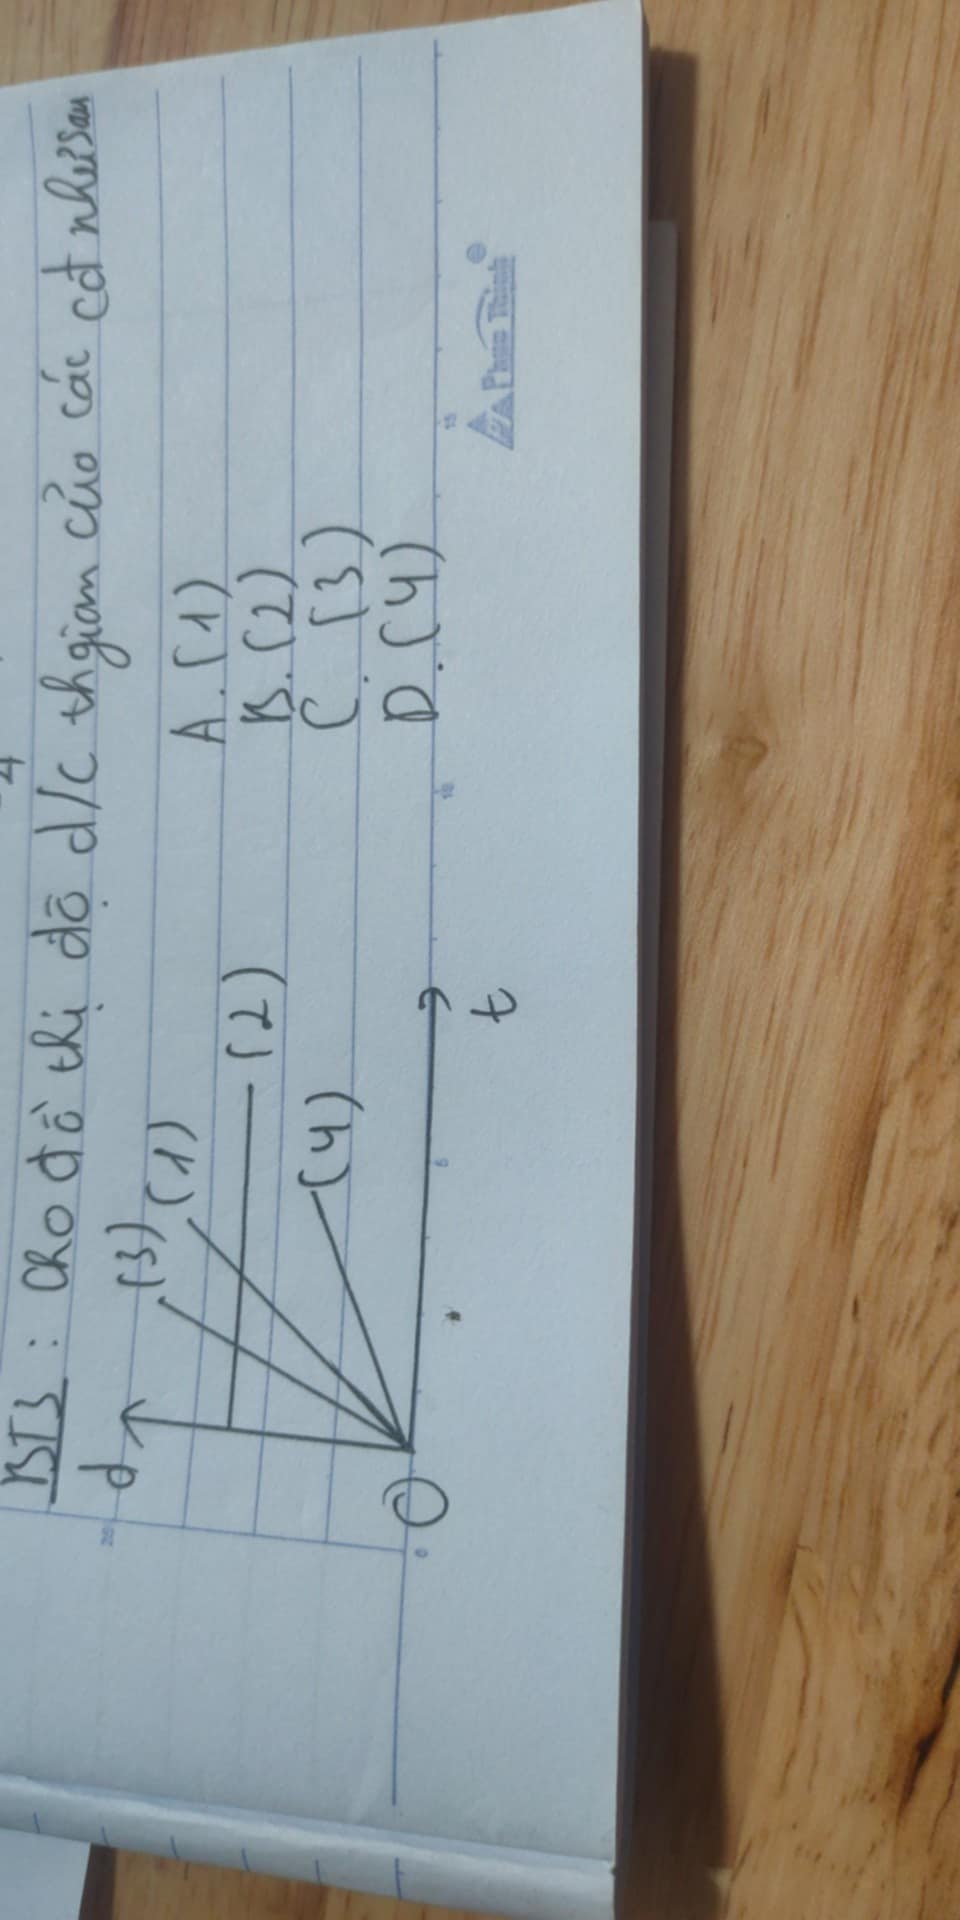 BT3 : Cho đồ thị độ d/c thgian của các cđ như sau
d
(3)
(1)
(2)
(4)
O
t
A. (1)
B. (2)
C. (3)
D. (4)
20
0
5
10
15
Phuc Thinh
4